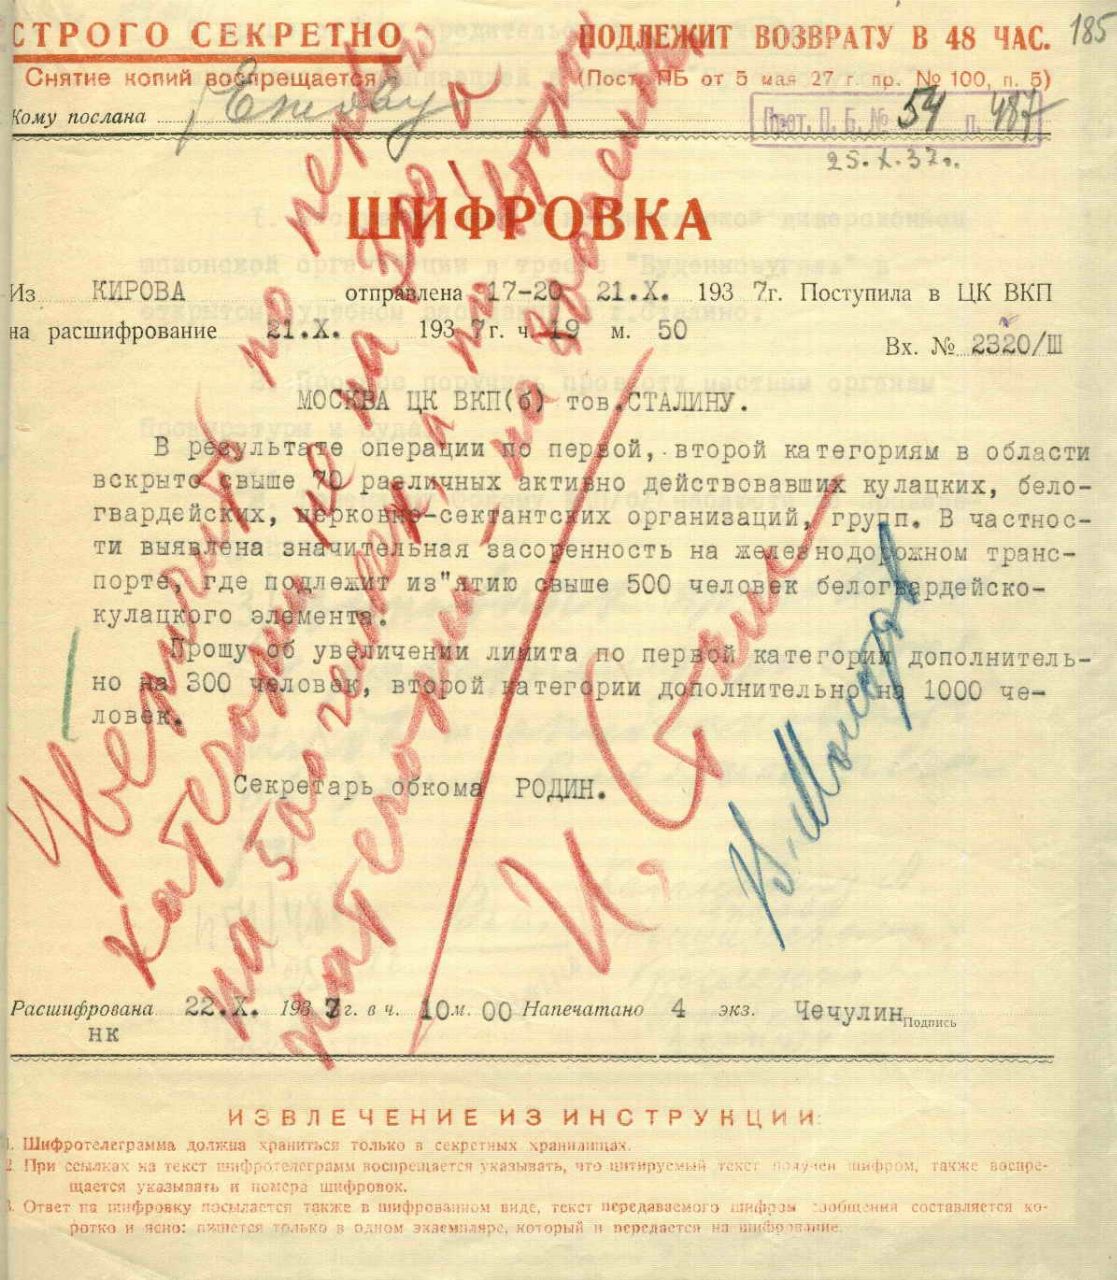 СТРОГО СЕКРЕТНО
ПОДЛЕЖИТ ВОЗВРАТУ В 48 ЧАС.
185
Снятие копий воспрещается
(Пост. ПБ от 5 мая 27 г. пр. № 100, п. 5)
Кому послана Ежову
Прот. П. Б. № 54 п. 487
25.X.37г.
ШИФРОВКА
Из КИРОВА отправлена 17-20 21.X. 1937г. Поступила в ЦК ВКП
на расшифрование 21.X. 1937г. ч. 19 м. 50
Вх. № 2320/Ш
МОСКВА ЦК ВКП(б) тов.СТАЛИНУ.
В результате операции по первой, второй категориям в области
вскрыто свыше 70 различных активно действовавших кулацких, бело-
гвардейских, церковно-сектантских организаций, групп. В частнос-
ти выявлена значительная засоренность на железнодорожном транс-
порте, где подлежит из"ятию свыше 500 человек белогвардейско-
кулацкого элемента.
Прошу об увеличении лимита по первой категории дополнитель-
но на 300 человек, второй категории дополнительно на 1000 че-
ловек.
Секретарь обкома РОДИН.
Увеличить по первой
категории не на 300, а
на 500 человек, а по второй
категории на 800 человек
И. Сталин
В. Молотов
Расшифрована 22.X. 1937г. в ч. 10 м. 00 Напечатано 4 экз. Чечулин
Подпись
нк
ИЗВЛЕЧЕНИЕ ИЗ ИНСТРУКЦИИ:
1. Шифротелеграмма должна храниться только в секретных хранилищах.
2. При ссылках на текст шифротелеграмм воспрещается указывать, что цитируемый текст получен шифром, также воспре-
щается указывать и номера шифровок.
3. Ответ на шифровку посылается также в шифрованном виде, текст передаваемого шифром сообщения составляется ко-
ротко и ясно: пишется только в одном экземпляре, который и передается на шифрование.